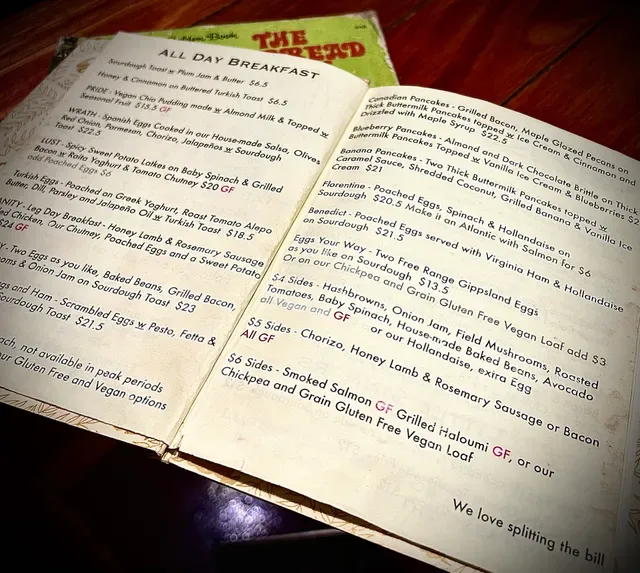 Golden Book
THE
BREAD
ALL DAY BREAKFAST
Sourdough Toast w Plum Jam & Butter $6.5
Honey & Cinnamon on Buttered Turkish Toast $6.5
PRIDE - Vegan Chia Pudding made w Almond Milk & Topped w
Seasonal Fruit $15.5 GF
WRATH - Spanish Eggs Cooked in our House-made Salsa, Olives
Red Onion, Parmesan, Chorizo, Jalapeños w Sourdough
Toast $22.5
LUST - Spicy Sweet Potato Latkes on Baby Spinach & Grilled
Bacon w Raita Yoghurt & Tomato Chutney $20 GF
add Poached Eggs $6
Turkish Eggs - Poached on Greek Yoghurt, Roast Tomato Alepo
Butter, Dill, Parsley and Jalapeño Oil w Turkish Toast $18.5
NITY - Leg Day Breakfast - Honey Lamb & Rosemary Sausage
ed Chicken, Our Chumey, Poached Eggs and a Sweet Potato
$24 GF
Y - Two Eggs as you like, Baked Beans, Grilled Bacon,
oms & Onion Jam on Sourdough Toast $23
gs and Ham - Scrambled Eggs w Pesto, Fetta &
Sourdough Toast $21.5
ach, not available in peak periods
ur Gluten Free and Vegan options
Canadian Pancakes - Grilled Bacon, Maple Glazed Pecans on
Thick Buttermilk Pancakes topped w Ice Cream & Cinnamon and
Drizzled with Maple Syrup $22.5
Blueberry Pancakes - Almond and Dark Chocolate Brittle on Thick
Buttermilk Pancakes Topped w Vanilla Ice Cream & Blueberries $2
Banana Pancakes - Two Thick Buttermilk Pancakes topped w
Caramel Sauce, Shredded Coconut, Grilled Banana & Vanilla Ice
Cream $21
Florentine - Poached Eggs, Spinach & Hollandaise on
Sourdough $20.5 Make it an Atlantic with Salmon for $6
Benedict - Poached Eggs served with Virginia Ham & Hollandaise
on Sourdough $21.5
Eggs Your Way - Two Free Range Gippsland Eggs
as you like on Sourdough $13.5
Or on our Chickpea and Grain Gluten Free Vegan Loaf add $3
$4 Sides - Hashbrowns, Onion Jam, Field Mushrooms, Roasted
Tomatoes, Baby Spinach, House-made Baked Beans, Avocado
all Vegan and GF or our Hollandaise, extra Egg
$5 Sides - Chorizo, Honey Lamb & Rosemary Sausage or Bacon
All GF
$6 Sides - Smoked Salmon GF Grilled Haloumi GF, or our
Chickpea and Grain Gluten Free Vegan Loaf
We love splitting the bill